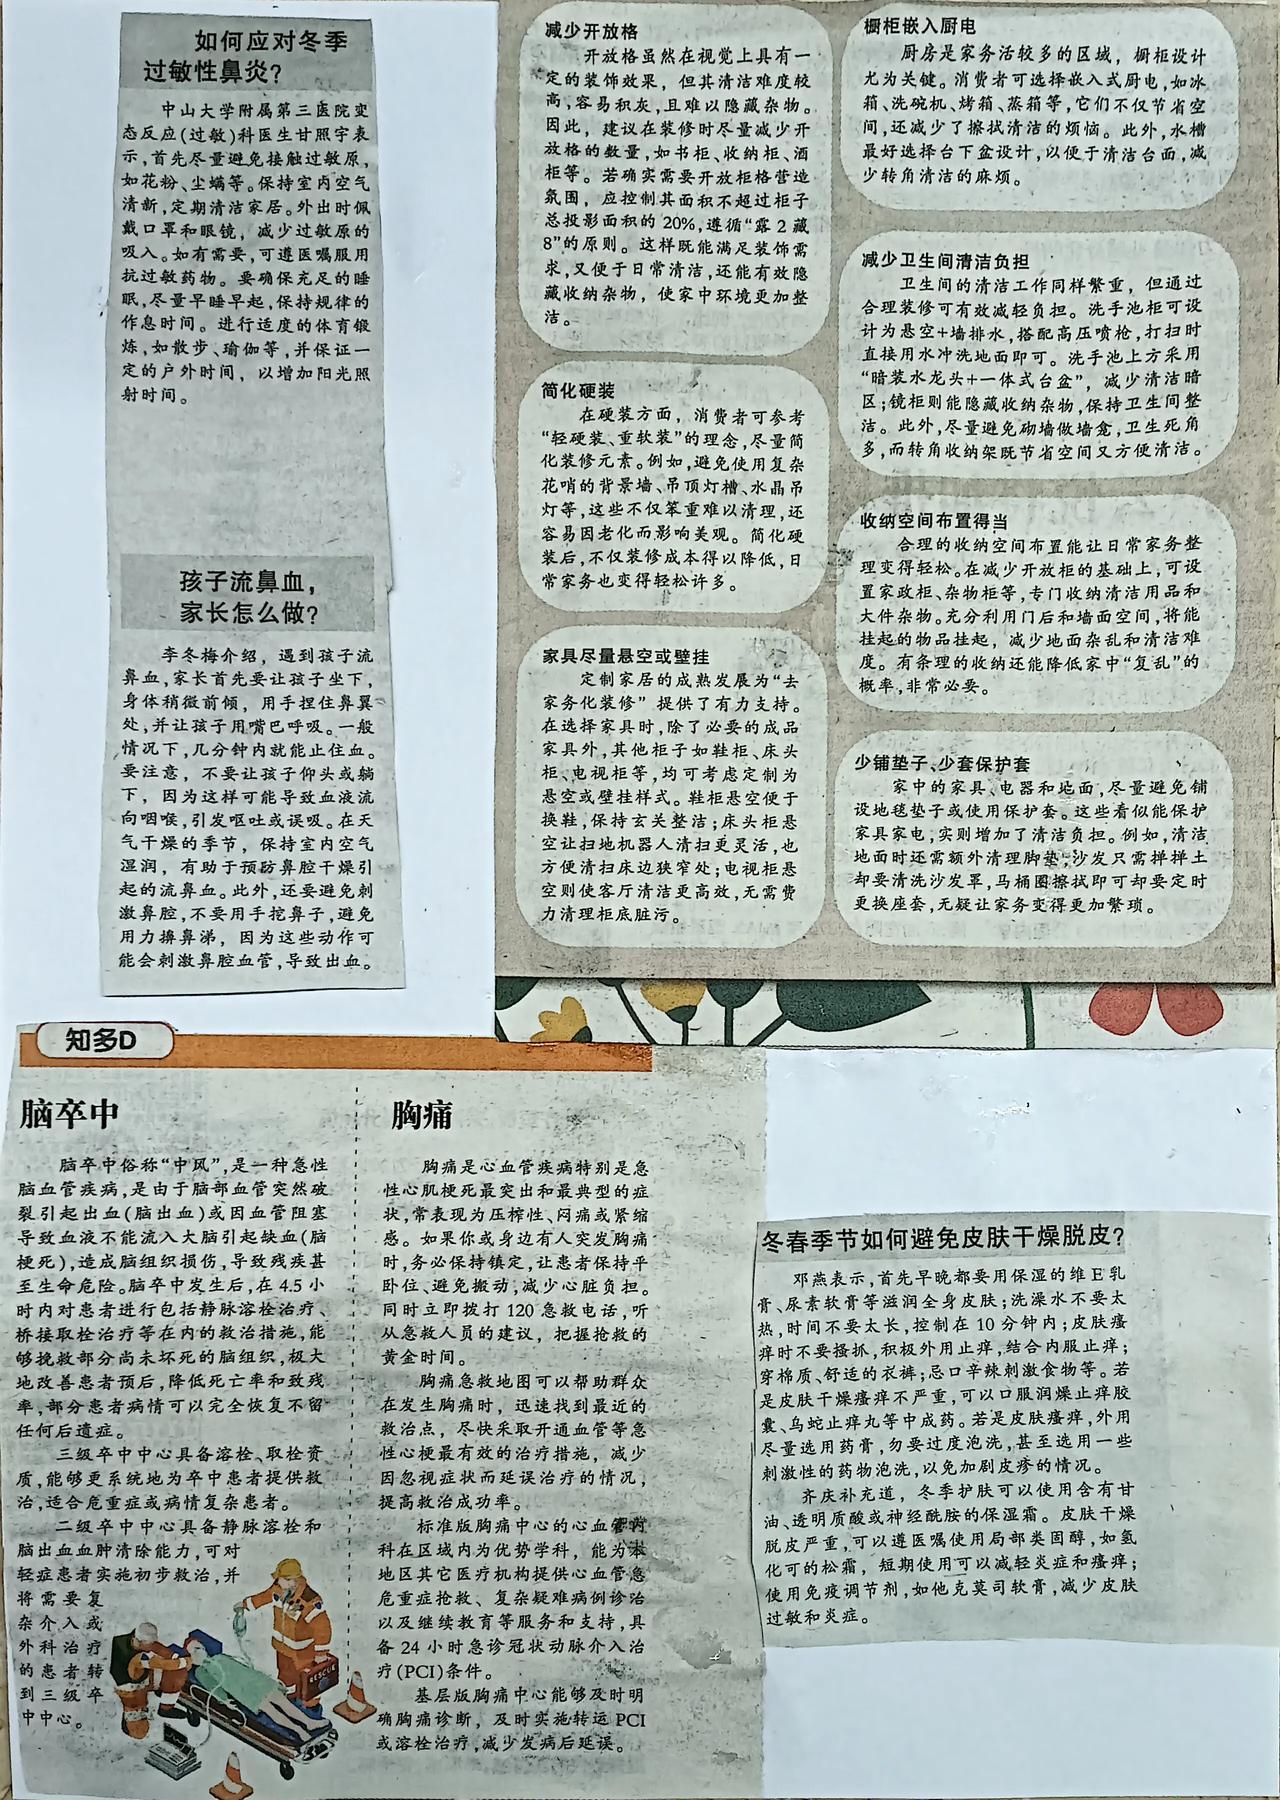 如何应对冬季
过敏性鼻炎?
中山大学附属第三医院变
态反应(过敏)科医生甘照宇表
示,首先尽量避免接触过敏原,
如花粉、尘螨等。保持室内空气
清新,定期清洁家居。外出时佩
戴口罩和眼镜，减少过敏原的
吸入。如有需要,可遵医嘱服用
抗过敏药物。要确保充足的睡
眠,尽量早睡早起,保持规律的
作息时间。进行适度的体育锻
炼,如散步、瑜伽等,并保证一
定的户外时间，以增加阳光照
射时间。
孩子流鼻血，
家长怎么做?
李冬梅介绍，遇到孩子流
鼻血,家长首先要让孩子坐下,
身体稍微前倾，用手捏住鼻翼
处,并让孩子用嘴巴呼吸。一般
情况下,几分钟内就能止住血。
要注意，不要让孩子仰头或躺
下，因为这样可能导致血液流
向咽喉,引发呕吐或误吸。在天
气干燥的季节，保持室内空气
湿润，有助于预防鼻腔干燥引
起的流鼻血。此外,还要避免刺
激鼻腔,不要用手挖鼻子,避免
用力擤鼻涕，因为这些动作可
能会刺激鼻腔血管,导致出血。
减少开放格
开放格虽然在视觉上具有一
定的装饰效果，但其清洁难度较
高,容易积灰,且难以隐藏杂物。
因此，建议在装修时尽量减少开
放格的数量,如书柜、收纳柜、酒
柜等。若确实需要开放柜格营造
氛围，应控制其面积不超过柜子
总投影面积的 20%,遵循“露 2 藏
8”的原则。这样既能满足装饰需
求,又便于日常清洁,还能有效隐
藏收纳杂物，使家中环境更加整
洁。
简化硬装
在硬装方面，消费者可参考
“轻硬装、重软装”的理念,尽量简
化装修元素。例如,避免使用复杂
花哨的背景墙、吊顶灯槽、水晶吊
灯等,这些不仅笨重难以清理,还
容易因老化而影响美观。简化硬
装后,不仅装修成本得以降低,日
常家务也变得轻松许多。
家具尽量悬空或壁挂
定制家居的成熟发展为“去
家务化装修”提供了有力支持。
在选择家具时,除了必要的成品
家具外,其他柜子如鞋柜、床头
柜、电视柜等,均可考虑定制为
悬空或壁挂样式。鞋柜悬空便于
换鞋,保持玄关整洁;床头柜悬
空让扫地机器人清扫更灵活,也
方便清扫床边狭窄处;电视柜悬
空则使客厅清洁更高效,无需费
力清理柜底脏污。
橱柜嵌入厨电
厨房是家务活较多的区域，橱柜设计
尤为关键。消费者可选择嵌入式厨电,如冰
箱、洗碗机、烤箱、蒸箱等,它们不仅节省空
间,还减少了擦拭清洁的烦恼。此外,水槽
最好选择台下盆设计,以便于清洁台面,减
少转角清洁的麻烦。
减少卫生间清洁负担
卫生间的清洁工作同样繁重，但通过
合理装修可有效减轻负担。洗手池柜可设
计为悬空+墙排水,搭配高压喷枪,打扫时
直接用水冲洗地面即可。洗手池上方采用
“暗装水龙头+一体式台盆”，减少清洁暗
区;镜柜则能隐藏收纳杂物,保持卫生间整
洁。此外,尽量避免砌墙做墙龛,卫生死角
多,而转角收纳架既节省空间又方便清洁。
收纳空间布置得当
合理的收纳空间布置能让日常家务整
理变得轻松。在减少开放柜的基础上,可设
置家政柜、杂物柜等,专门收纳清洁用品和
大件杂物。充分利用门后和墙面空间,将能
挂起的物品挂起，减少地面杂乱和清洁难
度。有条理的收纳还能降低家中“复乱”的
概率,非常必要。
少铺垫子、少套保护套
家中的家具、电器和地面,尽量避免铺
设地毯垫子或使用保护套。这些看似能保护
家具家电,实则增加了清洁负担。例如,清洁
地面时还需额外清理脚垫;沙发只需掸掸土
却要清洗沙发罩,马桶圈擦拭即可却要定时
更换座套,无疑让家务变得更加繁琐。
知多D
脑卒中
脑卒中俗称“中风”,是一种急性
脑血管疾病,是由于脑部血管突然破
裂引起出血(脑出血)或因血管阻塞
导致血液不能流入大脑引起缺血(脑
梗死),造成脑组织损伤,导致残疾甚
至生命危险。脑卒中发生后,在 4.5 小
时内对患者进行包括静脉溶栓治疗、
桥接取栓治疗等在内的救治措施,能
够挽救部分尚未坏死的脑组织,极大
地改善患者预后,降低死亡率和致残
率,部分患者病情可以完全恢复不留
任何后遗症。
三级卒中中心具备溶栓、取栓资
质,能够更系统地为卒中患者提供救
治,适合危重症或病情复杂患者。
二级卒中中心具备静脉溶栓和
脑出血血肿清除能力,可对
轻症患者实施初步救治,并
将需要复
杂介入或
外科治疗
的患者转
到三级卒
中中心。
RESCUE
胸痛
胸痛是心血管疾病特别是急
性心肌梗死最突出和最典型的症
状,常表现为压榨性、闷痛或紧缩
感。如果你或身边有人突发胸痛
时,务必保持镇定,让患者保持平
卧位、避免搬动,减少心脏负担。
同时立即拨打 120 急救电话,听
从急救人员的建议，把握抢救的
黄金时间。
胸痛急救地图可以帮助群众
在发生胸痛时，迅速找到最近的
救治点，尽快采取开通血管等急
性心梗最有效的治疗措施，减少
因忽视症状而延误治疗的情况,
提高救治成功率。
标准版胸痛中心的心血管内
科在区域内为优势学科，能为本
地区其它医疗机构提供心血管急
危重症抢救、复杂疑难病例诊治
以及继续教育等服务和支持,具
备 24 小时急诊冠状动脉介入治
疗(PCI)条件。
基层版胸痛中心能够及时明
确胸痛诊断，及时实施转运 PCI
或溶栓治疗,减少发病后延误。
冬春季节如何避免皮肤干燥脱皮?
邓燕表示,首先早晚都要用保湿的维 E 乳
膏、尿素软膏等滋润全身皮肤;洗澡水不要太
热,时间不要太长,控制在 10 分钟内;皮肤瘙
痒时不要搔抓,积极外用止痒,结合内服止痒;
穿棉质、舒适的衣裤;忌口辛辣刺激食物等。若
是皮肤干燥瘙痒不严重,可以口服润燥止痒胶
囊、乌蛇止痒丸等中成药。若是皮肤瘙痒,外用
尽量选用药膏,勿要过度泡洗,甚至选用一些
刺激性的药物泡洗,以免加剧皮疹的情况。
齐庆补充道，冬季护肤可以使用含有甘
油、透明质酸或神经酰胺的保湿霜。皮肤干燥
脱皮严重,可以遵医嘱使用局部类固醇,如氢
化可的松霜，短期使用可以减轻炎症和瘙痒;
使用免疫调节剂,如他克莫司软膏,减少皮肤
过敏和炎症。